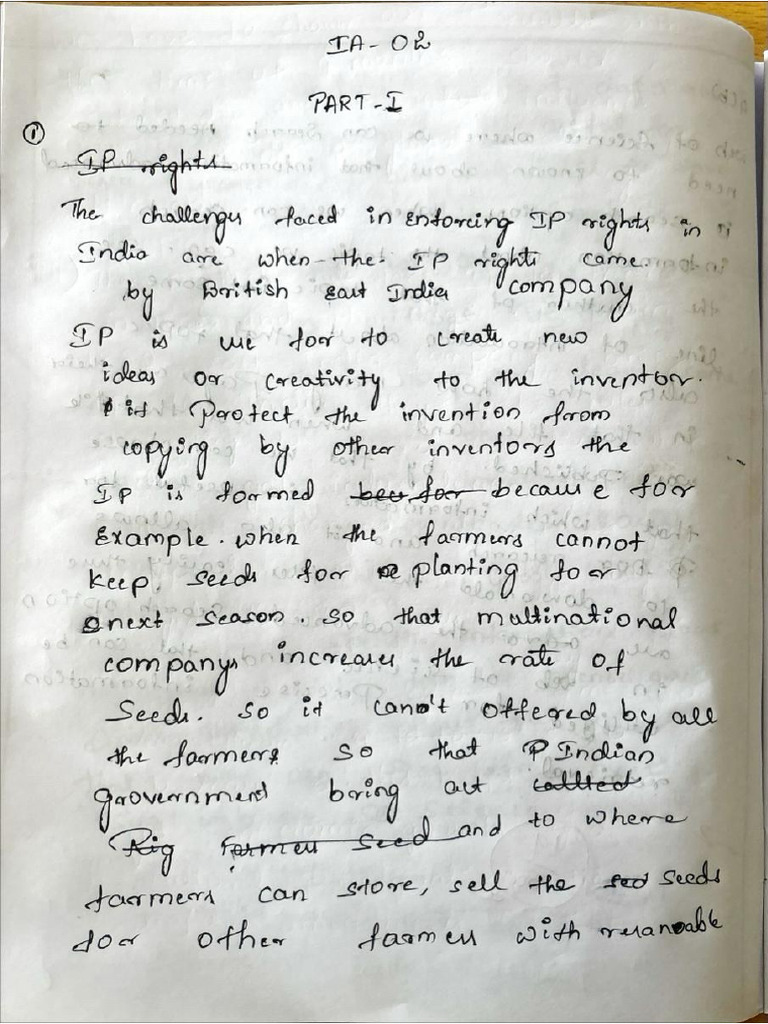 IA - 02
PART - I
①
IP rights
The challenges faced in enforcing IP rights in
India are when the IP rights came
by British East India company
IP is use for to create new
ideas or creativity to the inventor.
it Protect the invention from
copying by other inventors the
IP is formed because for
Example. when the farmers cannot
keep seeds for planting for
next season. so that multinational
companys increases the rate of
seeds. so it can't offered by all
the farmers so that Indian
government bring act callted
Rig farmers seed and to where
farmers can store, sell the seeds
for other farmers with resanable